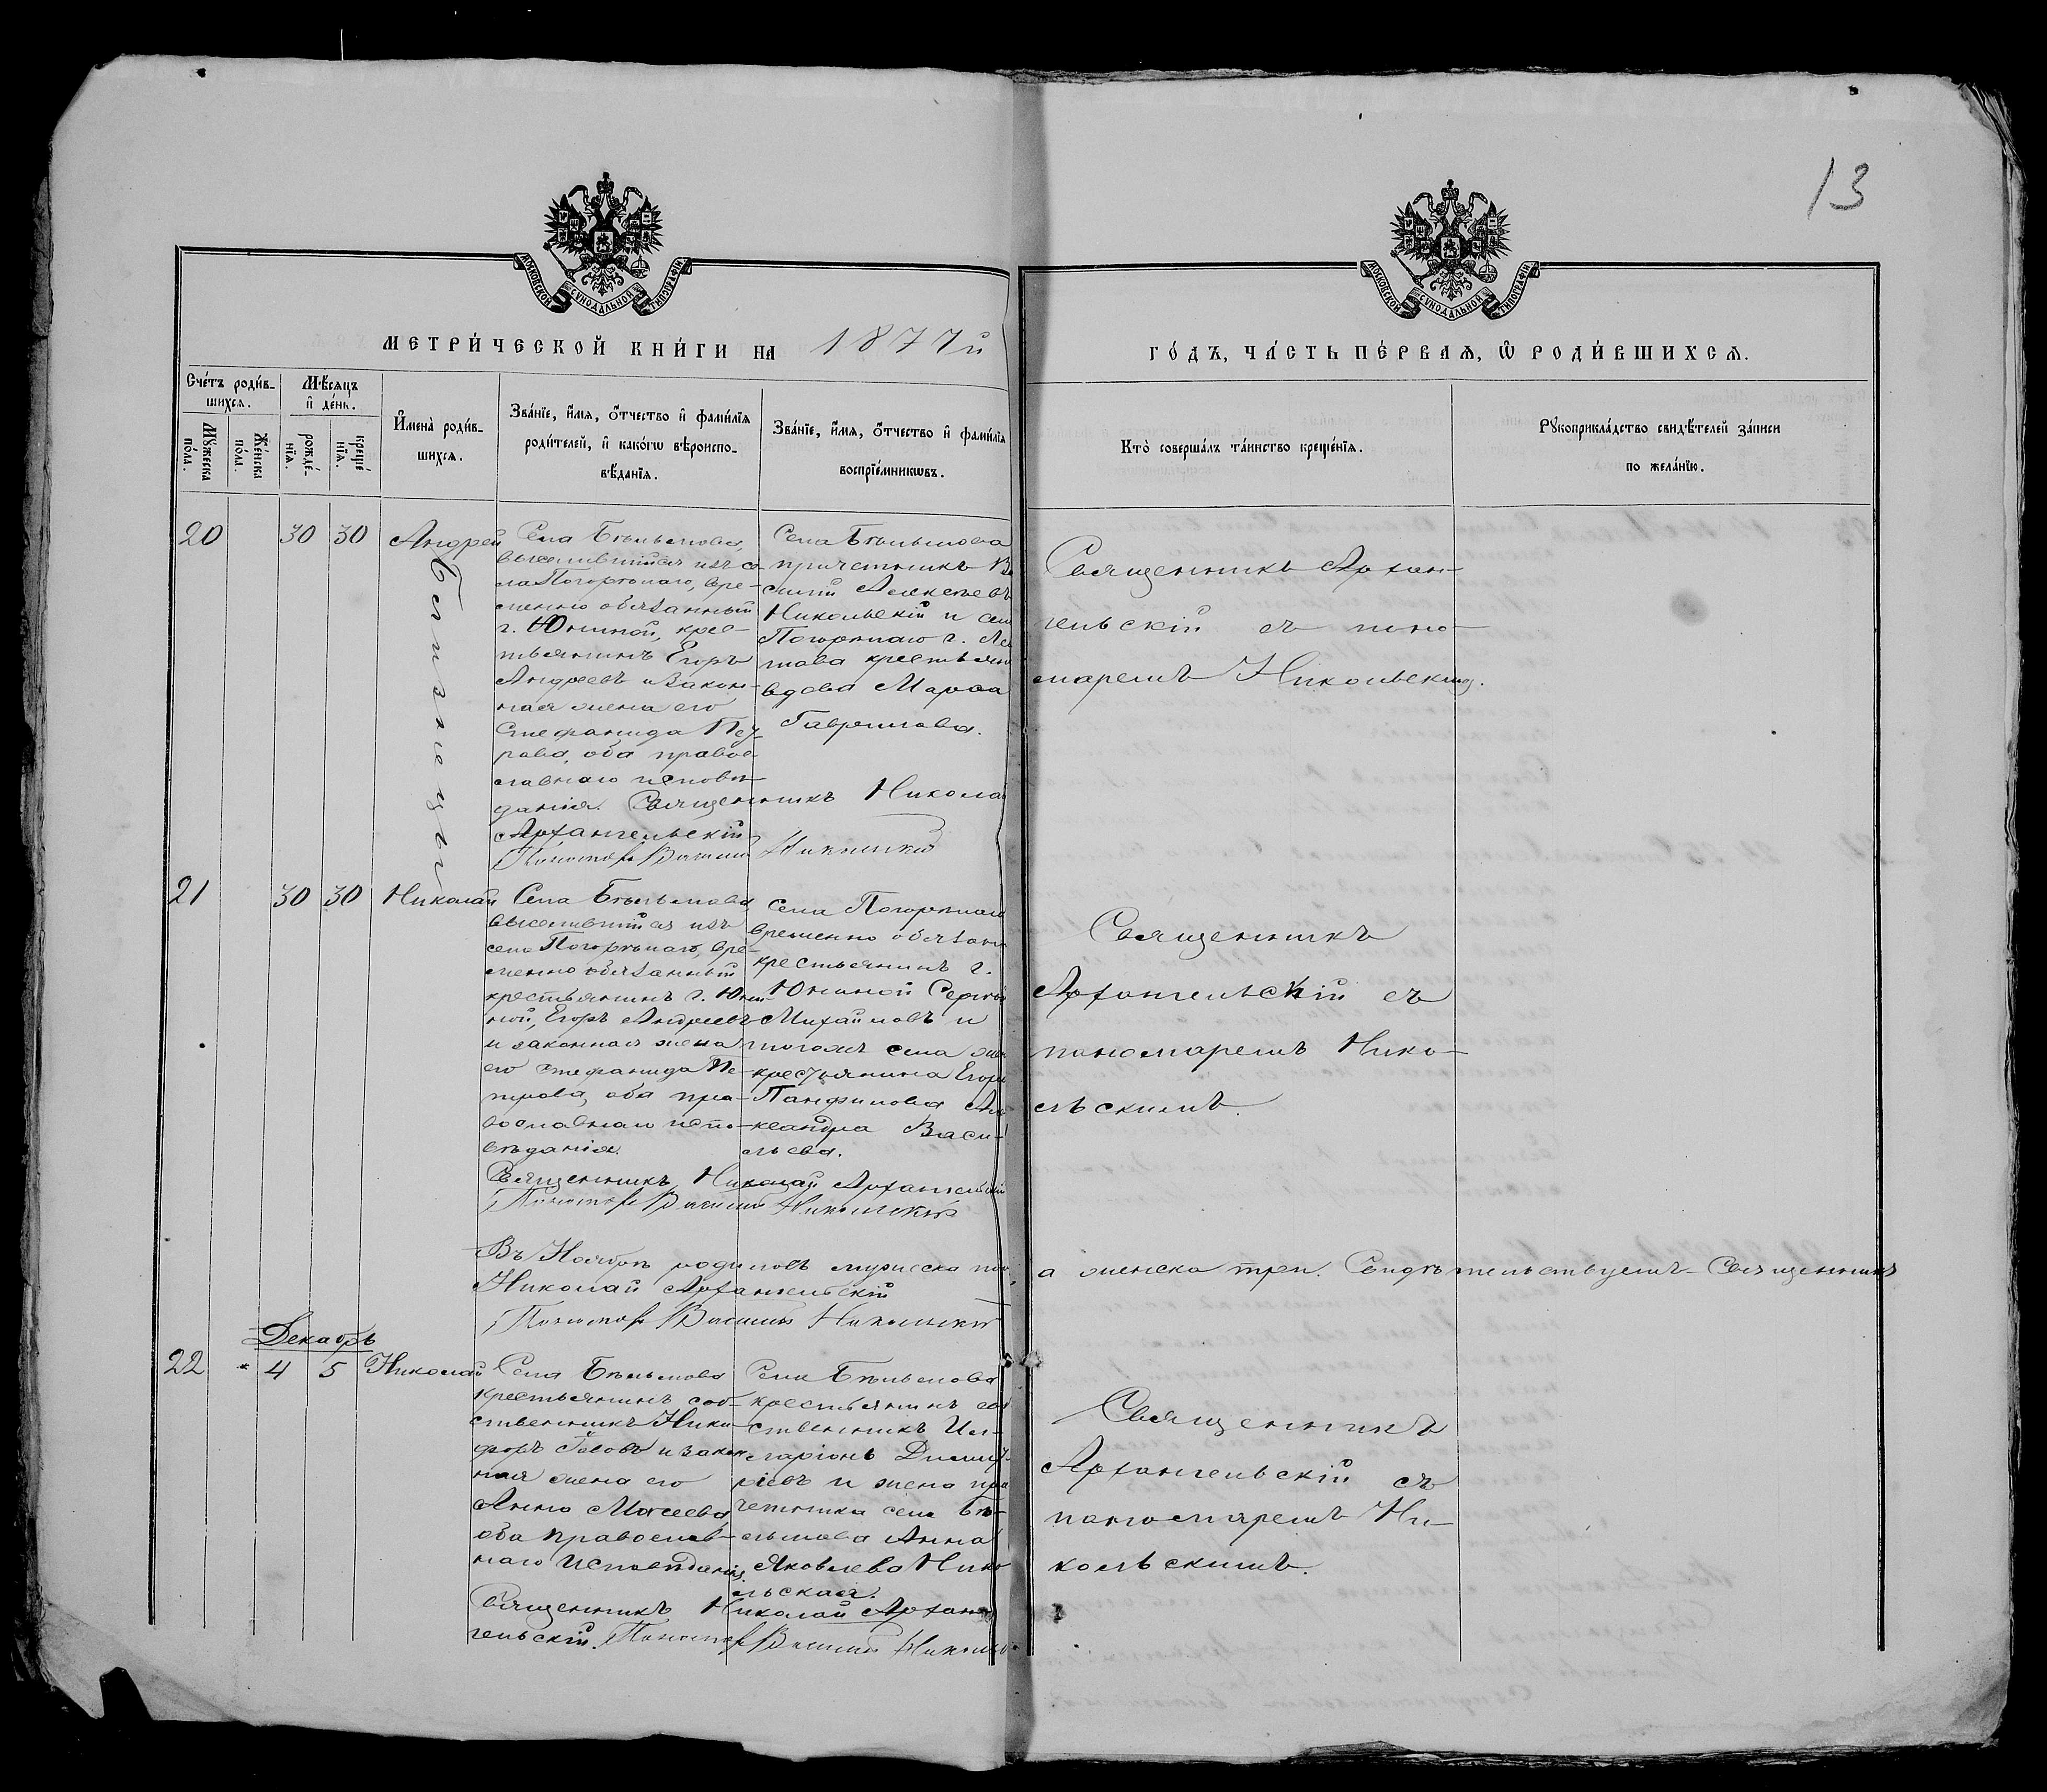 13
МОСКОВСКОЙ СѴНОДАЛЬНОЙ ТИПОГРАФІИ
МОСКОВСКОЙ СѴНОДАЛЬНОЙ ТИПОГРАФІИ
МЕТРИ́ЧЕСКОЙ КНИ́ГИ НА 1877й
ГО́ДЪ, ЧА́СТЬ ПЕ́РВАѦ, Ѡ РОДИ́ВШИХСѦ.
Сче́тъ роди́в-
шихсѧ.
Мꙋ́жеска
по́ла.
Же́нска
по́ла.
Мѣ́сѧцъ
и҆ де́нь.
рожде́-
нїѧ.
креще́
нїѧ.
И҆мена̀ роди́в-
шихсѧ.
Зва́нїе, и҆́мѧ, ѻ҆́тчество и҆ фами́лїѧ
роди́телей, и҆ како́гѡ вѣроиспо-
вѣ́данїѧ.
Зва́нїе, и҆́мѧ, ѻ҆́тчество и҆ фами́лїѧ
воспрїе́мникѡвъ.
Кто̀ соверша́лъ та́инство креще́нїѧ.
Рꙋкоприкла́дство свидѣ́телей за́писи
по жела́нїю.
20 30 30 Андрей
Близнецы
Села
выселившійся изъ се
ла Погорѣлаго, вре-
менно обязанный
г. Юниной, крес-
тьянинъ Егоръ
Андреевъ и закон-
ная жена его
Стефанида Пет-
рова, оба правос-
лавнаго исповѣ-
данія. Священникъ Николай
Архангельскій
Пономарь Василій Никольскій
Села
причетникъ Ва
силій Алексѣевъ
Никольскій и села
Погорѣлаго г.
крестьян
вдова Марѳа
Гаврилова.
Священникъ Архан-
гельскій съ поно-
маремъ Никольским.
21 30 30 Николай
Села
выселившійся изъ
села Погорѣлаго, вре-
менно обязанный
крестьянинъ г. Юни-
ной, Егоръ Андреевъ
и законная жена
его Стефанида Пе-
трова, оба пра-
вославнаго испо-
вѣданія.
Священникъ Николай Архангельскій
Пономарь Василій Никольскій
Села Погорѣлаго
временно обязан
крестьянинъ г.
Юниной Сергѣй
Михайловъ и
тогожъ села жена
крестьянина Егора
Панфилова Але
ксандра Васи-
льева.
Священникъ
Архангельскій съ
пономаремъ Нико-
льскимъ.
Въ Ноябрѣ родилось мужеска пол
а женска три. Свидѣтельствуемъ Священникъ
Николай Архангельскій
Пономарь Василій Никольскій
Декабрь
22 4 5 Николай
Села
крестьянинъ соб-
ственникъ Ники-
форъ и закон
ная жена его
Анна Моѵсеева,
оба православ-
наго исповѣданія.
Священникъ Николай Архан-
гельскій. Пономарь Василій Никольс
Села
крестьянинъ соб
ственникъ Ил-
ларіонъ Димит-
ріевъ и жена при
четника села
Анна
Яковлева Нико
льская.
Священникъ
Архангельскій съ
пономаремъ Ни-
кольскимъ.